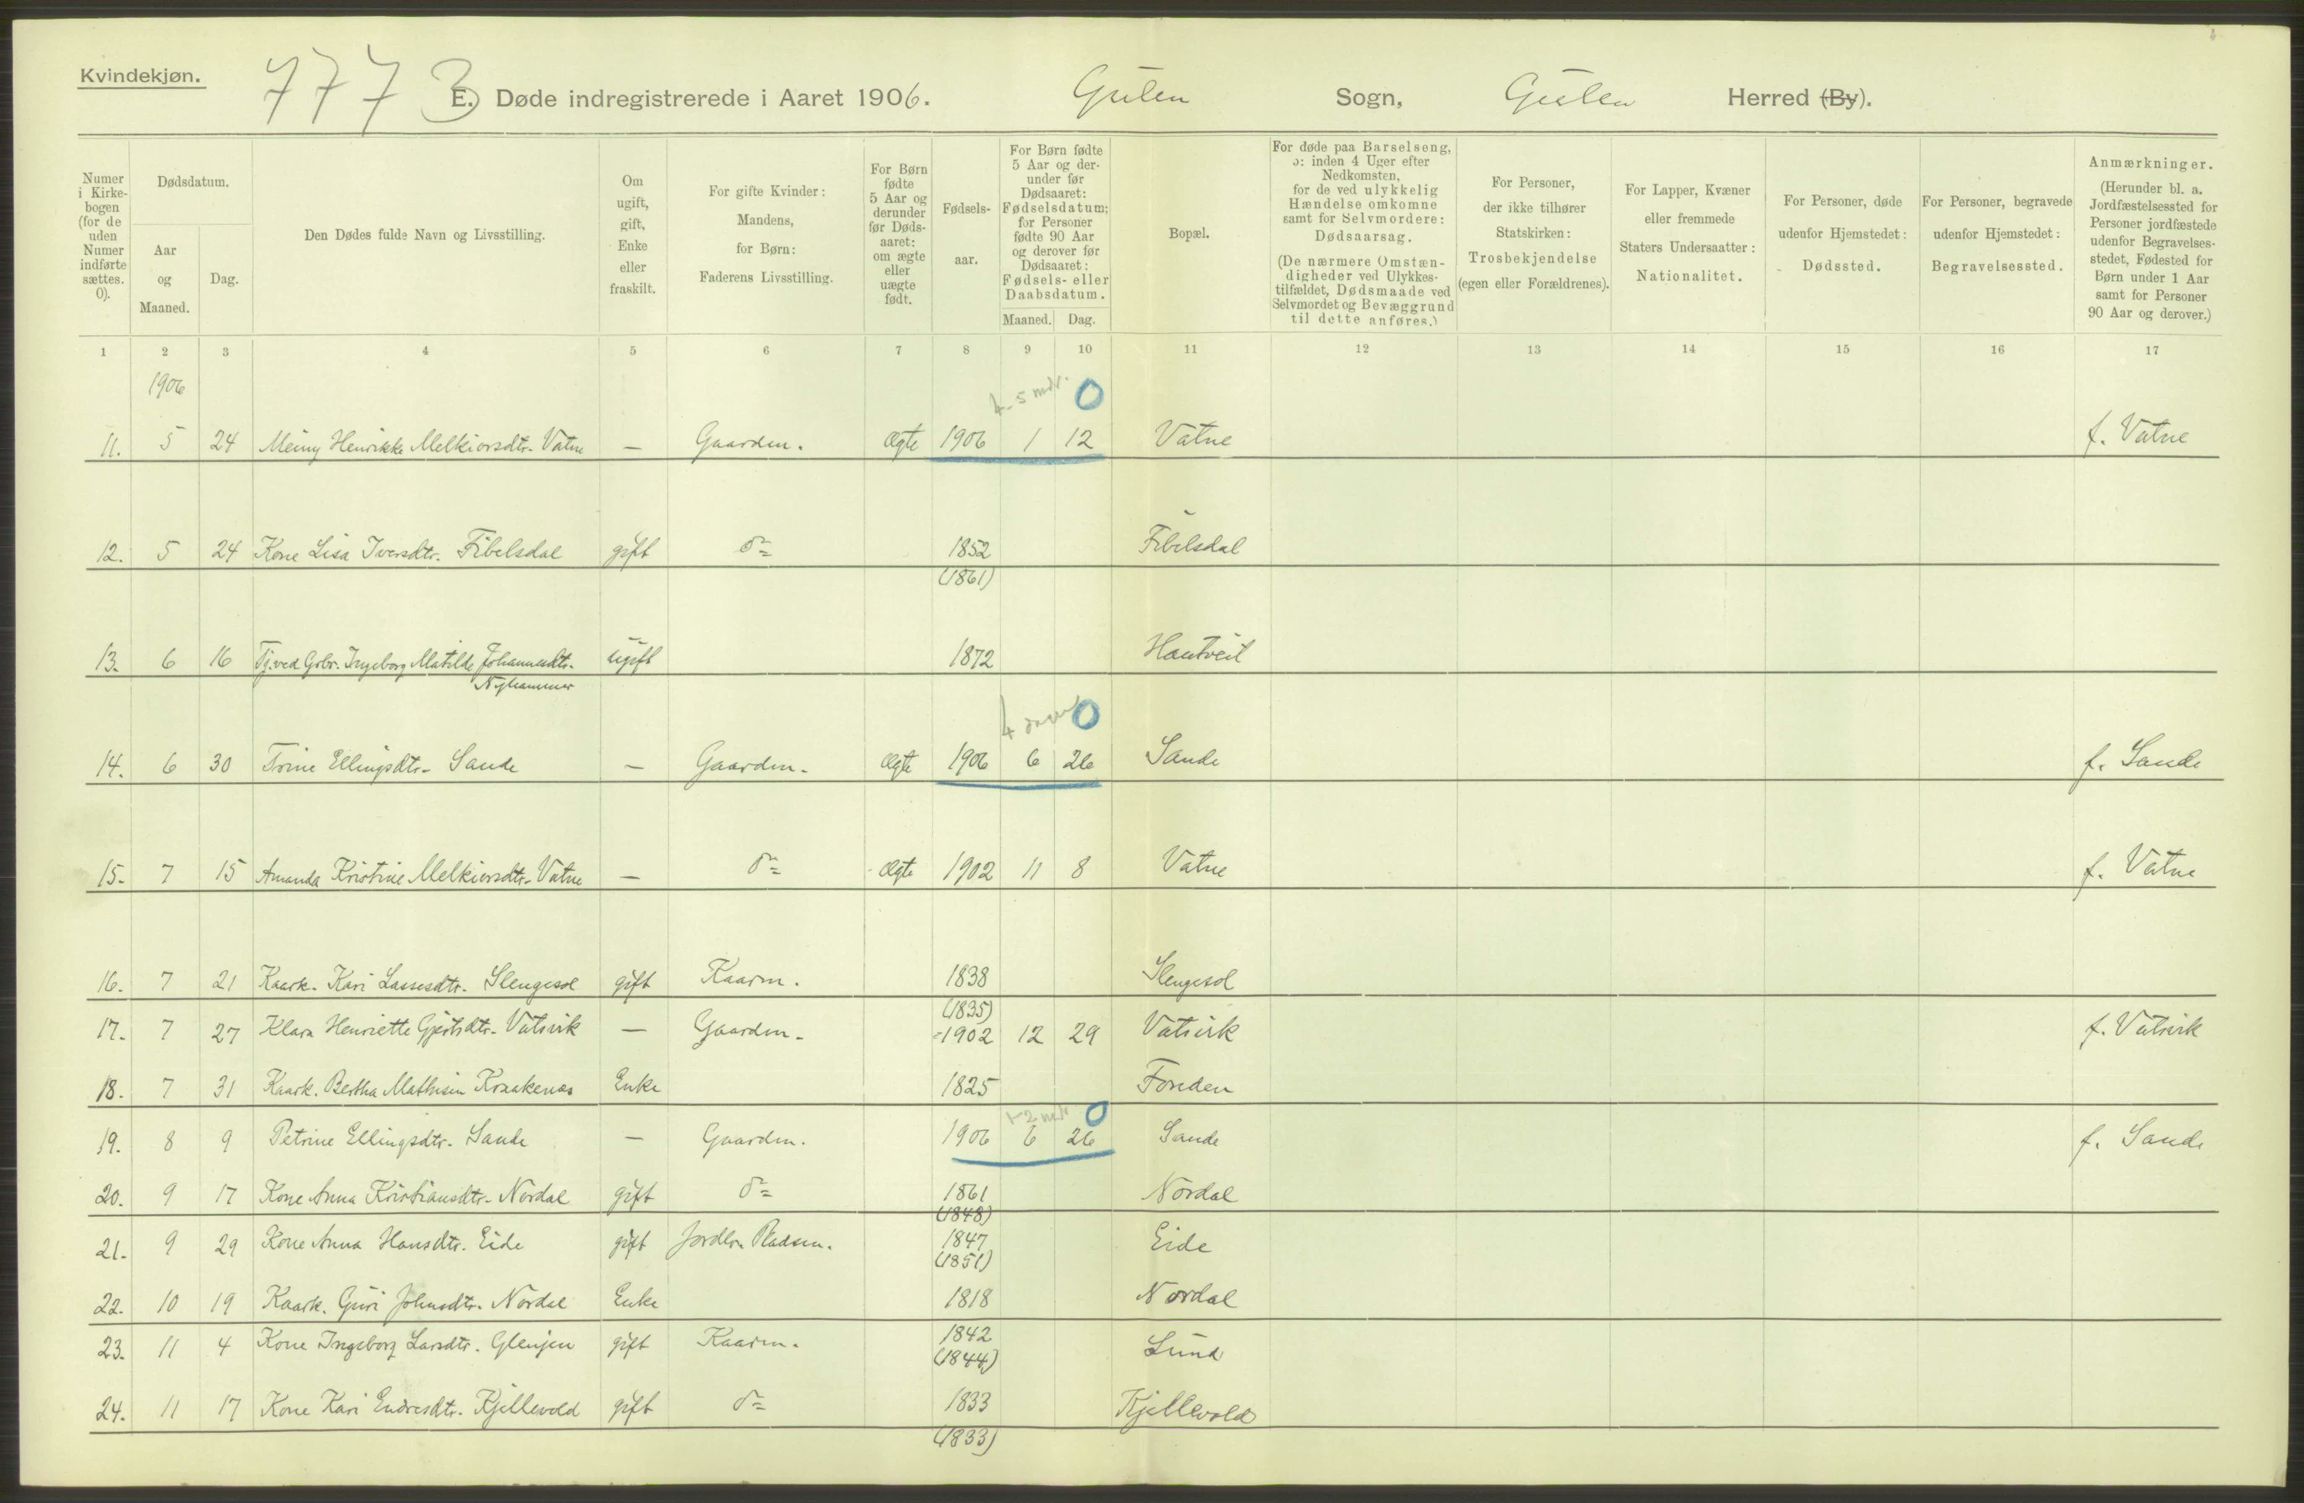 Kvindekjøn.
7773
E. Døde indregistrerede i Aaret 1906. Gulen Sogn, Gulen Herred (By).
Numer i Kirkebogen (for de uden Numer indførte sættes. 0).
Dødsdatum.
Aar og Maaned.
Dag.
Den Dødes fulde Navn og Livsstilling.
Om ugift, gift, Enke eller fraskilt.
For gifte Kvinder: Mandens, for Børn: Faderens Livsstilling.
For Børn fødte 5 Aar og derunder før Dødsaaret: om ægte eller uægte født.
Fødselsaar.
For Børn fødte 5 Aar og derunder før Dødsaaret: Fødselsdatum; for Personer fødte 90 Aar og derover før Dødsaaret: Fødsels- eller Daabsdatum.
Maaned. Dag.
Bopæl.
For døde paa Barselseng, ɔ: inden 4 Uger efter Nedkomsten, for de ved ulykkelig Hændelse omkomne samt for Selvmordere: Dødsaarsag. (De nærmere Omstændigheder ved Ulykkestilfældet, Dødsmaade ved Selvmordet og Bevæggrund til dette anføres.)
For Personer, der ikke tilhører Statskirken: Trosbekjendelse (egen eller Forældrenes).
For Lapper, Kvæner eller fremmede Staters Undersaatter: Nationalitet.
For Personer, døde udenfor Hjemstedet: Dødssted.
For Personer, begravede udenfor Hjemstedet: Begravelsessted.
Anmærkninger. (Herunder bl. a. Jordfæstelsessted for Personer jordfæstede udenfor Begravelsesstedet, Fødested for Børn under 1 Aar samt for Personer 90 Aar og derover.)
1 2 3 4 5 6 7 8 9 10 11 12 13 14 15 16 17
1906
4-5 mdr. 0
11. 5 24 Meiny Henrikke Melkiorsdtr. Vatne — Gaardm. Ægte 1906 1 12 Vatne f. Vatne
12. 5 24 Kone Lisa Iversdtr. Fibelsdal gift do 1852 Fibelsdal
(1861)
13. 6 16 Tj. ved Grbr. Ingeborg Matilde Johannesdtr. ugift 1872 Hantveit
Nyhammer
4 0
14. 6 30 Trine Ellingsdtr. Sande — Gaardm. Ægte 1906 6 26 Sande f. Sande
15. 7 15 Amanda Kristine Melkiorsdtr. Vatne — do Ægte 1902 11 8 Vatne f. Vatne
16. 7 21 Kaark. Kari Lassesdtr. Slengesol gift Kaarm. 1838 Slengesol
(1835)
17. 7 27 Klara Henriette Gjertsdtr. Vatsvik — Gaardm. 1902 12 29 Vatsvik f. Vatsvik
18. 7 31 Kaark. Bertha Mathisen Kraakenæs Enke 1825 Fonden
1-2 mdr 0
19. 8 9 Petrine Ellingsdtr. Sande — Gaardm. 1906 6 26 Sande f. Sande
20. 9 17 Kone Anna Kristiansdtr. Nordal gift do 1861 Nordal
(1848)
21. 9 29 Kone Anna Hansdtr. Eide gift Jordbr. Pladsm. 1847 Eide
(1851)
22. 10 19 Kaark. Guri Johnsdtr. Nordal Enke 1818 Nordal
23. 11 4 Kone Ingeborg Larsdtr. Glenjen gift Kaarm. 1842 Lund
(1844)
24. 11 17 Kone Kari Endresdtr. Kjellevold gift do 1833 Kjellevold
(1833)